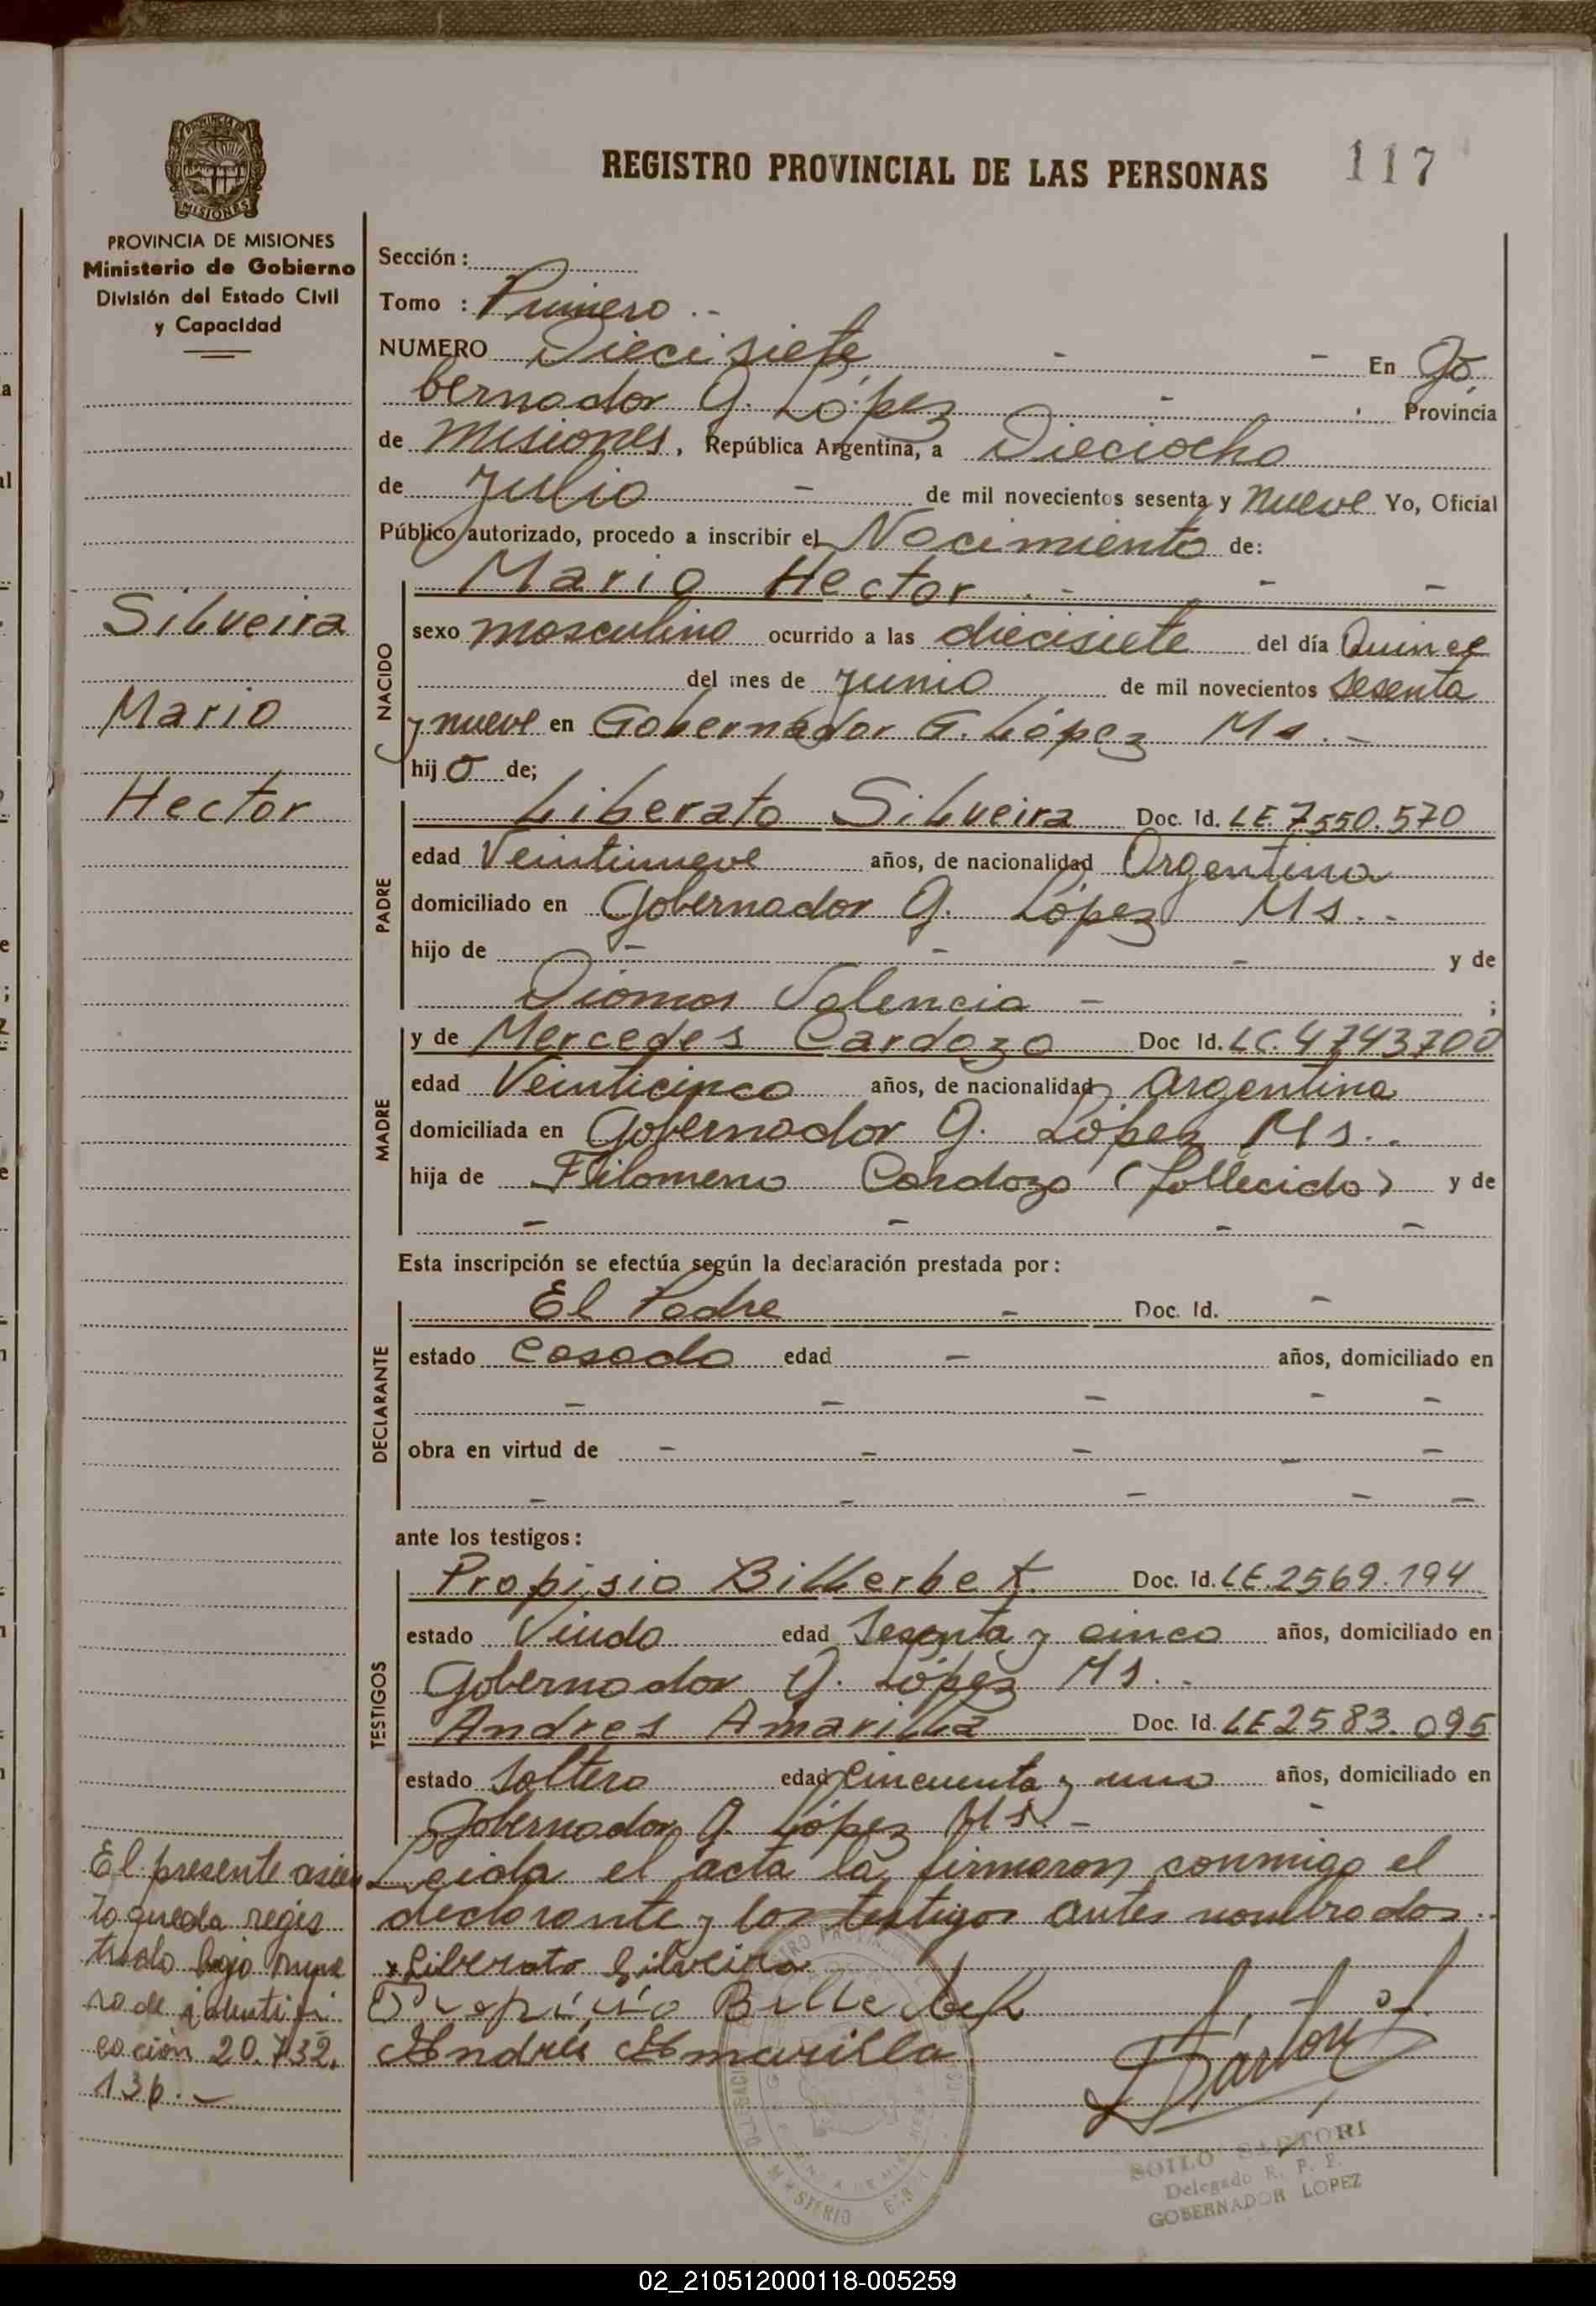 REGISTRO PROVINCIAL DE LAS PERSONAS 117
PROVINCIA DE MISIONES
Ministerio de Gobierno
División del Estado Civil
y Capacidad
Silveira
Mario
Hector
Sección :
Tomo : Primero .-
NUMERO Diecisiete - - En Go
bernador G. López - Provincia
de Misiones, República Argentina, a Dieciocho
de Julio - de mil novecientos sesenta y nueve Yo, Oficial
Público autorizado, procedo a inscribir el Nacimiento de:
Mario Hector . - - -
NACIDO
sexo masculino ocurrido a las diecisiete del día Quince
del mes de Junio de mil novecientos sesenta
y nueve en Gobernador G. López Ms. -
hijo de;
PADRE
Liberato Silveira Doc. Id. LE. 7.550.570
edad Veintinueve años, de nacionalidad Argentina
domiciliado en Gobernador G. López Ms. -
hijo de - - - y de
Valencia - ;
MADRE
y de Mercedes Cardozo Doc Id. LC. 4743700
edad Veinticinco años, de nacionalidad Argentina
domiciliada en Gobernador G. López Ms. .
hija de Filomeno Cardozo (fallecido) y de
- - - -
Esta inscripción se efectúa según la declaración prestada por:
DECLARANTE
El Padre - Doc. Id. -
estado Casado edad - años, domiciliado en
- - - - -
obra en virtud de - - - - -
- - - - -
ante los testigos:
TESTIGOS
Propisio Billerbek Doc. Id. LE. 2569.194
estado Viudo edad Sesenta y cinco años, domiciliado en
Gobernador G. López Ms. -
Andres Amarilla Doc. Id. LE 2583.095
estado Soltero edad Cincuenta y uno años, domiciliado en
Gobernador G. López Ms. -
Leida el acta la firmaron conmigo el
declarante y los testigos antes nombrados.
Liberato Silveira
Propisio Billerbek
Andrés Amarilla
El presente asien
to queda regis
trado bajo nume
ro de identifi
cación 20.732.
136. -
SOILO SARTORI
Delegado R. P. P.
GOBERNADOR LOPEZ
02_210512000118-005259